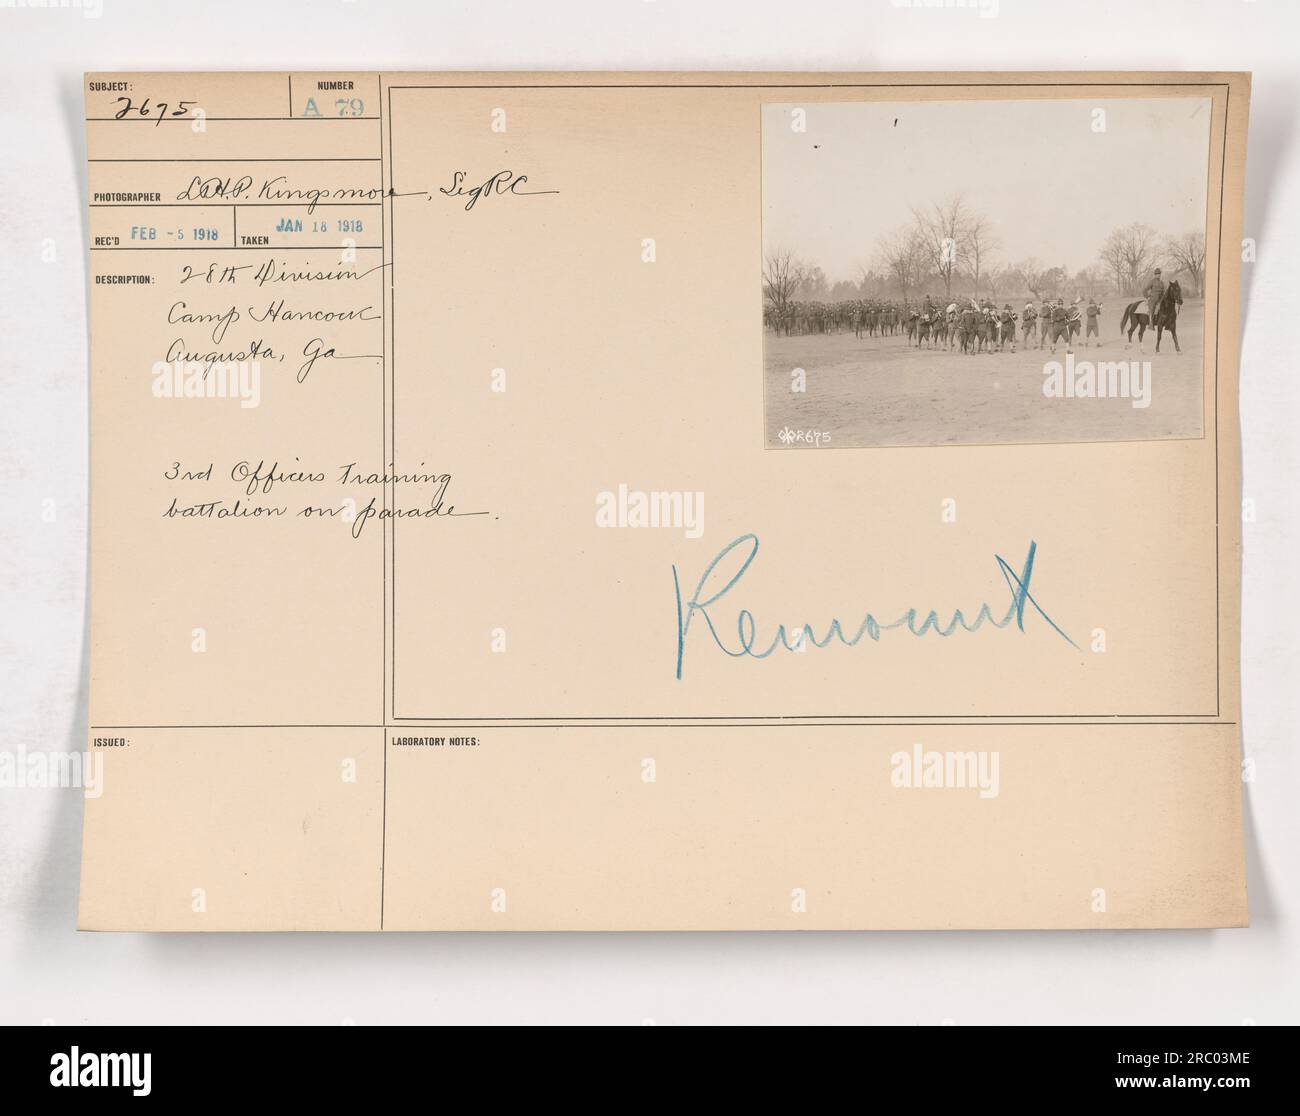 SUBJECT:
2675
NUMBER
A 79
PHOTOGRAPHER
Kingsmore, Sig R C
REC'D FEB -5 1918
TAKEN JAN 18 1918
DESCRIPTION: 28th Division
Camp Hancock
Augusta, Ga
3rd Officers Training
battalion on parade.
R675
Remount
ISSUED:
LABORATORY NOTES:
alamy
alamy
alamy
alamy
alamy
alamy
Image ID: 2RC03ME
www.alamy.com